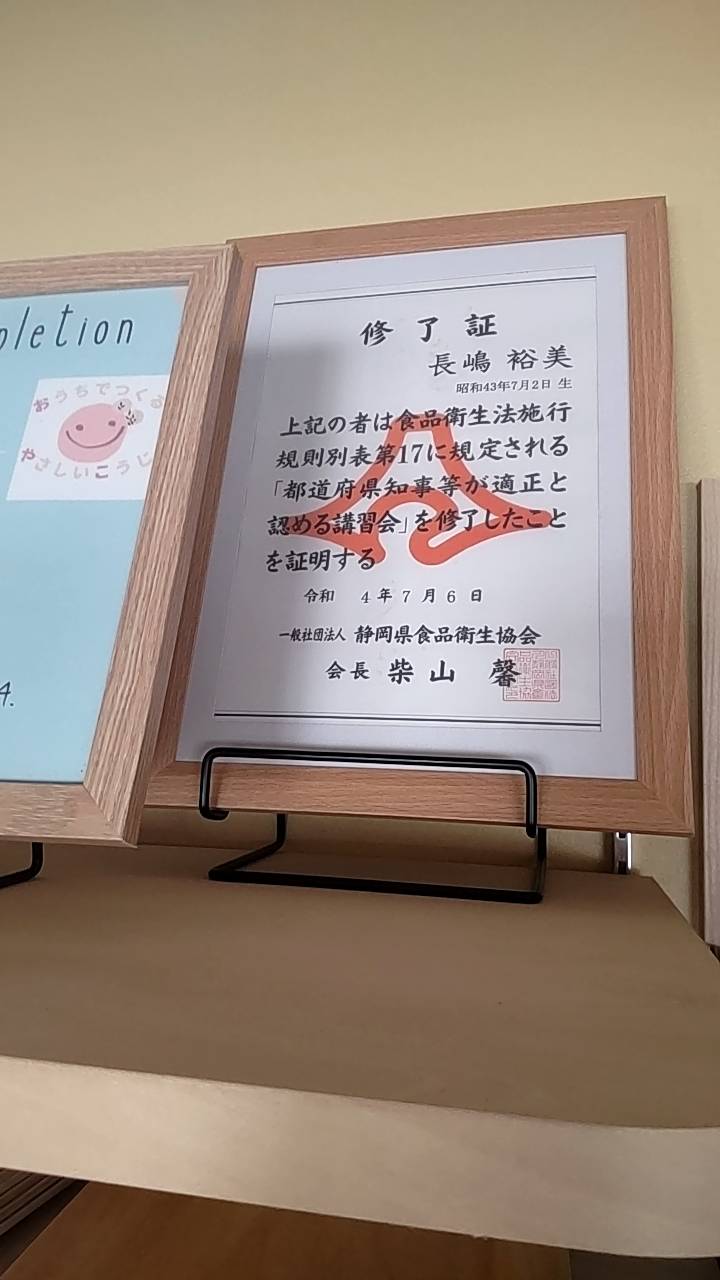 pletion
おうちでつくる
やさしいこうじ
4.
修了証
長嶋 裕美
昭和43年7月2日 生
上記の者は食品衛生法施行
規則別表第17に規定される
「都道府県知事等が適正と
認める講習会」を修了したこと
を証明する
令和 4年7月6日
一般社団法人 静岡県食品衛生協会
会長 柴山 馨